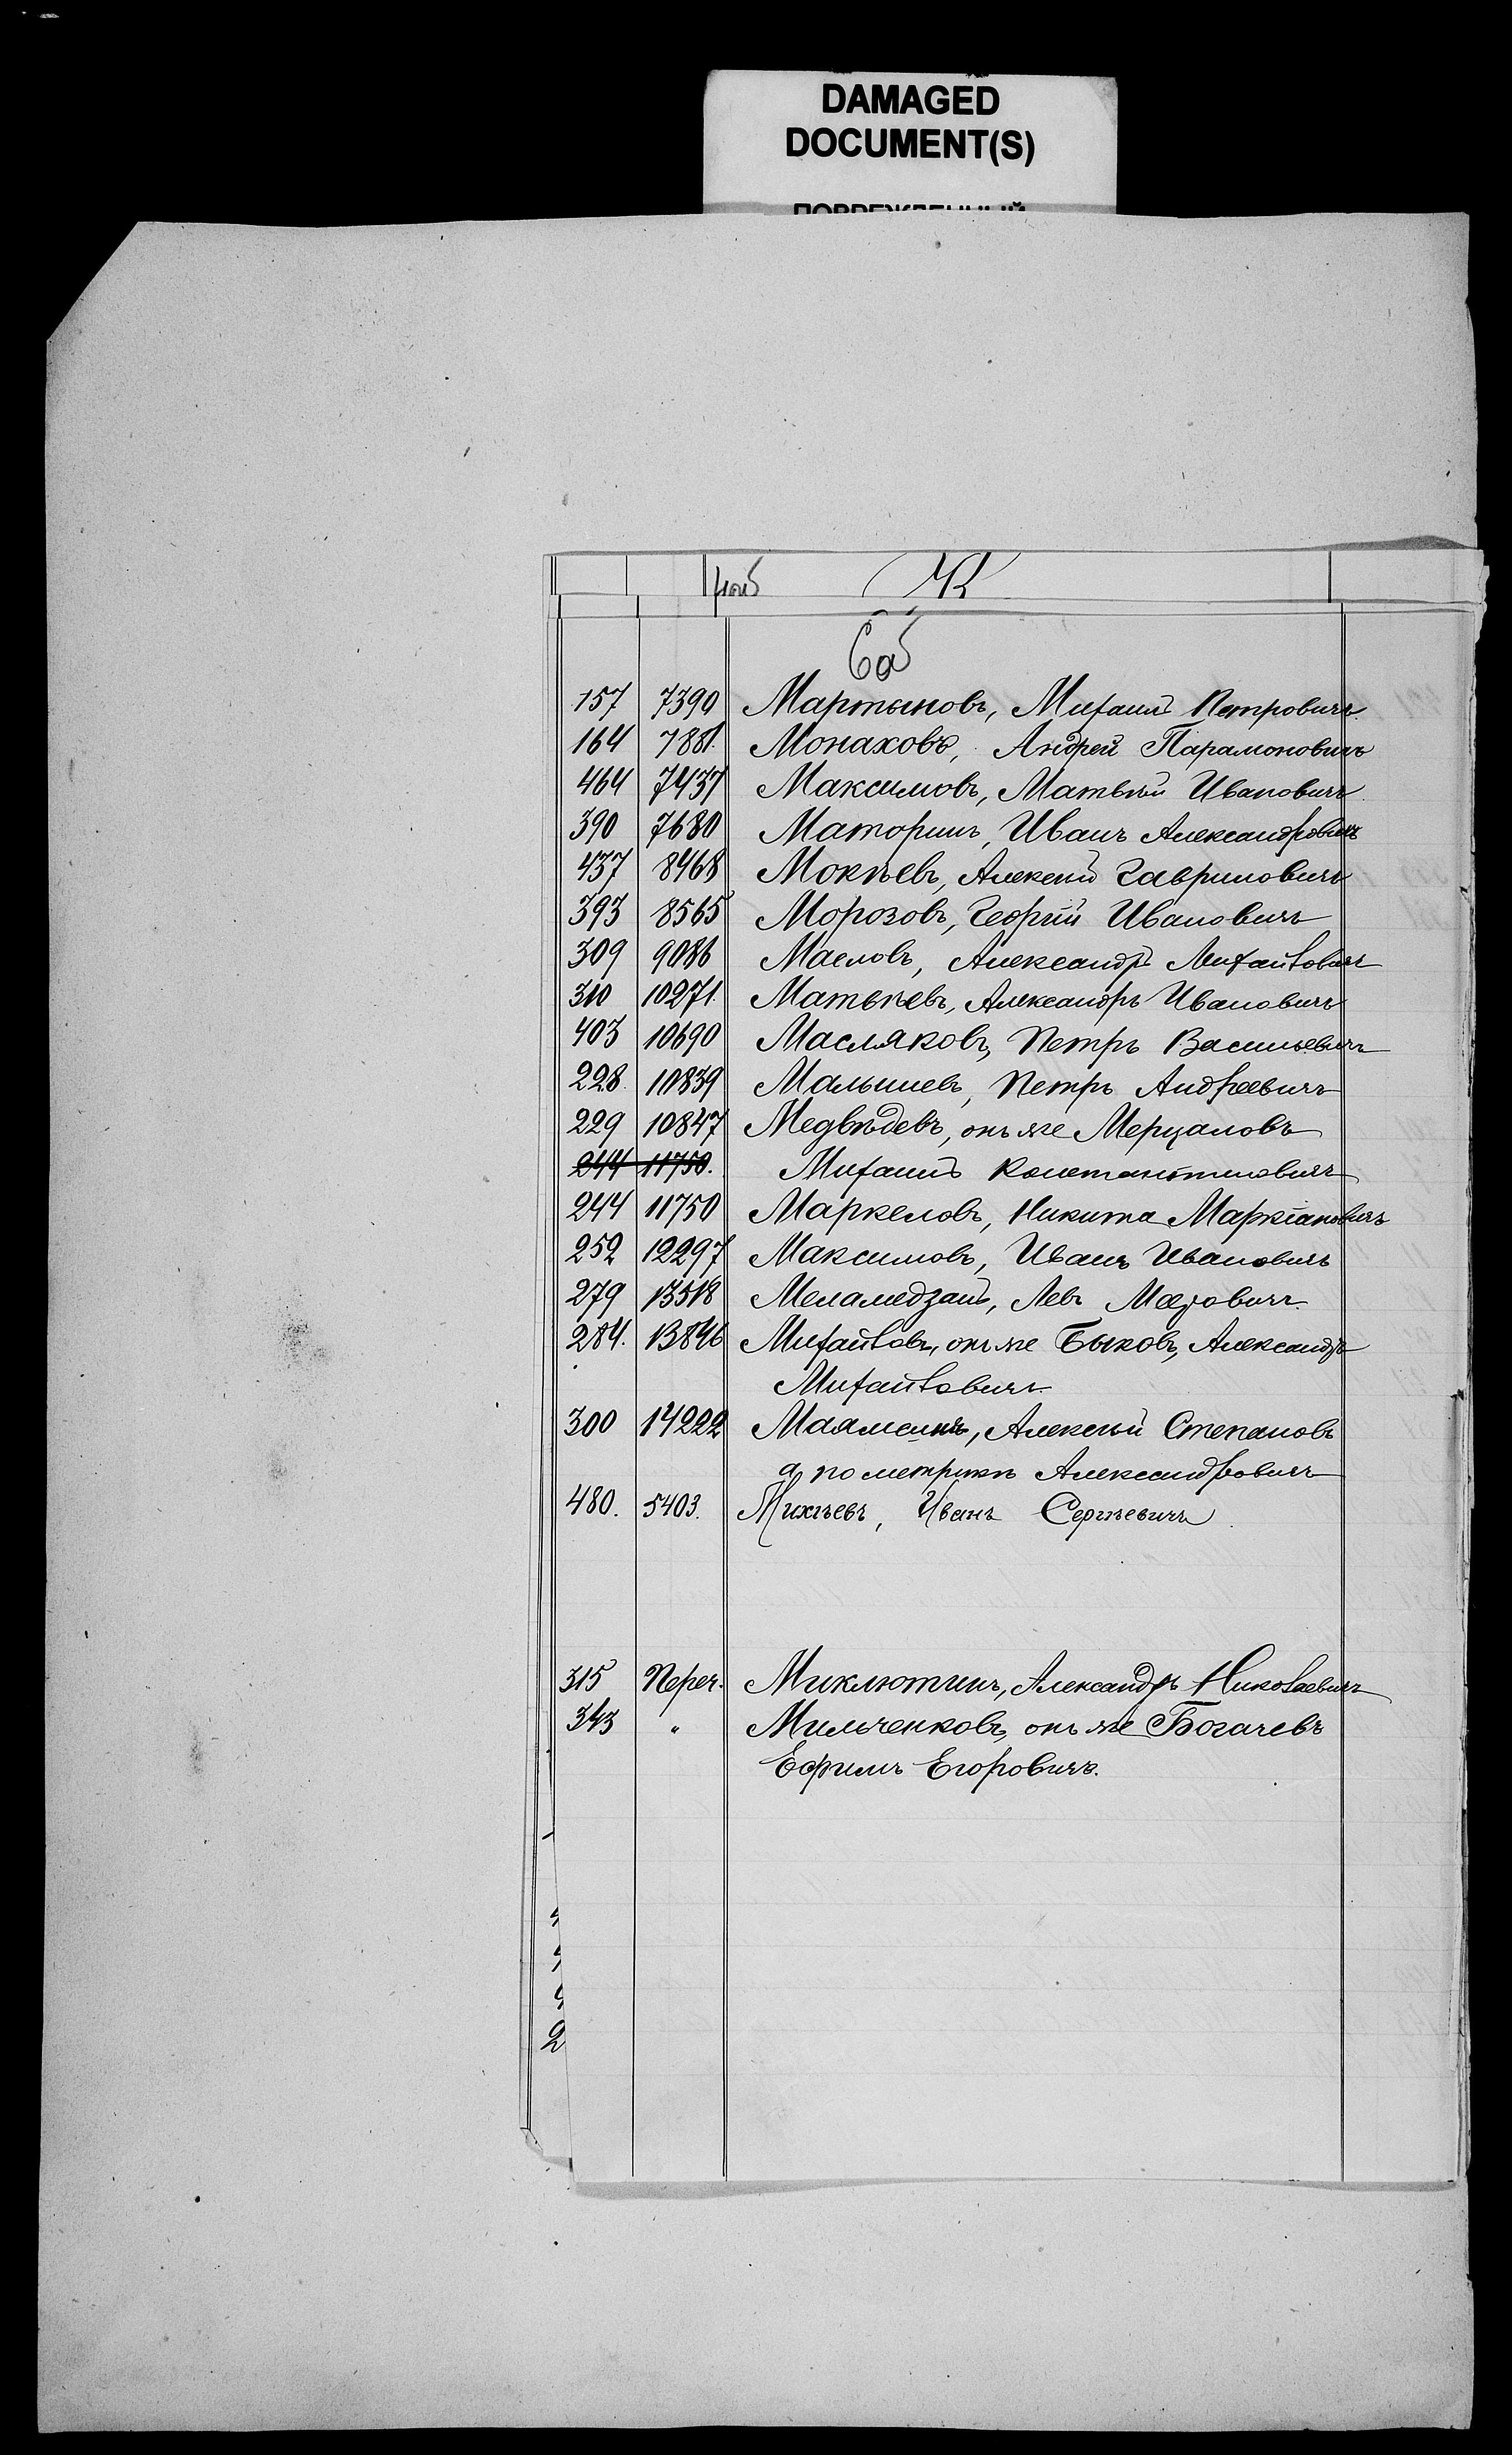 DAMAGED
DOCUMENT(S)
ПОВРЕЖДЕННЫЙ
К
157 7390 Мартыновъ, Михаилъ Петровичъ
164 7881. Монаховъ, Андрей Парамоновичъ
464 7437 Максимовъ, Матвѣй Ивановичъ
390 7680 Маторинъ, Иванъ Александровичъ
437 8468 Мокѣевъ, Алексѣй Гавриловичъ
393 8565 Морозовъ, Георгій Ивановичъ
309 9086 Масловъ, Александръ Михайловичъ
310 10271. Матвѣевъ, Александръ Ивановичъ
403 10690 Масляковъ, Петръ Васильевичъ
228. 10839 Малышевъ, Петръ Андреевичъ
229 10847 Медвѣдевъ, онъ же Мерцаловъ
244 11750. Михаилъ Константиновичъ
244 11750 Маркеловъ, Никита Маркіановичъ
252 12297 Максимовъ, Иванъ Ивановичъ
279 13518 Меламедзонъ, Левъ Мееровичъ
284. 13846 Михайловъ, онъ же Быковъ, Александръ
Михайловичъ
300 14222 Алексѣй Степановъ
а по метрикѣ Александровичъ
480. 5403. Михѣевъ, Иванъ Сергѣевичъ
315 Переч. Миклютинъ, Александръ Николаевичъ
343 " Мильченковъ, онъ же Богачевъ
Ефимъ Егоровичъ.
2